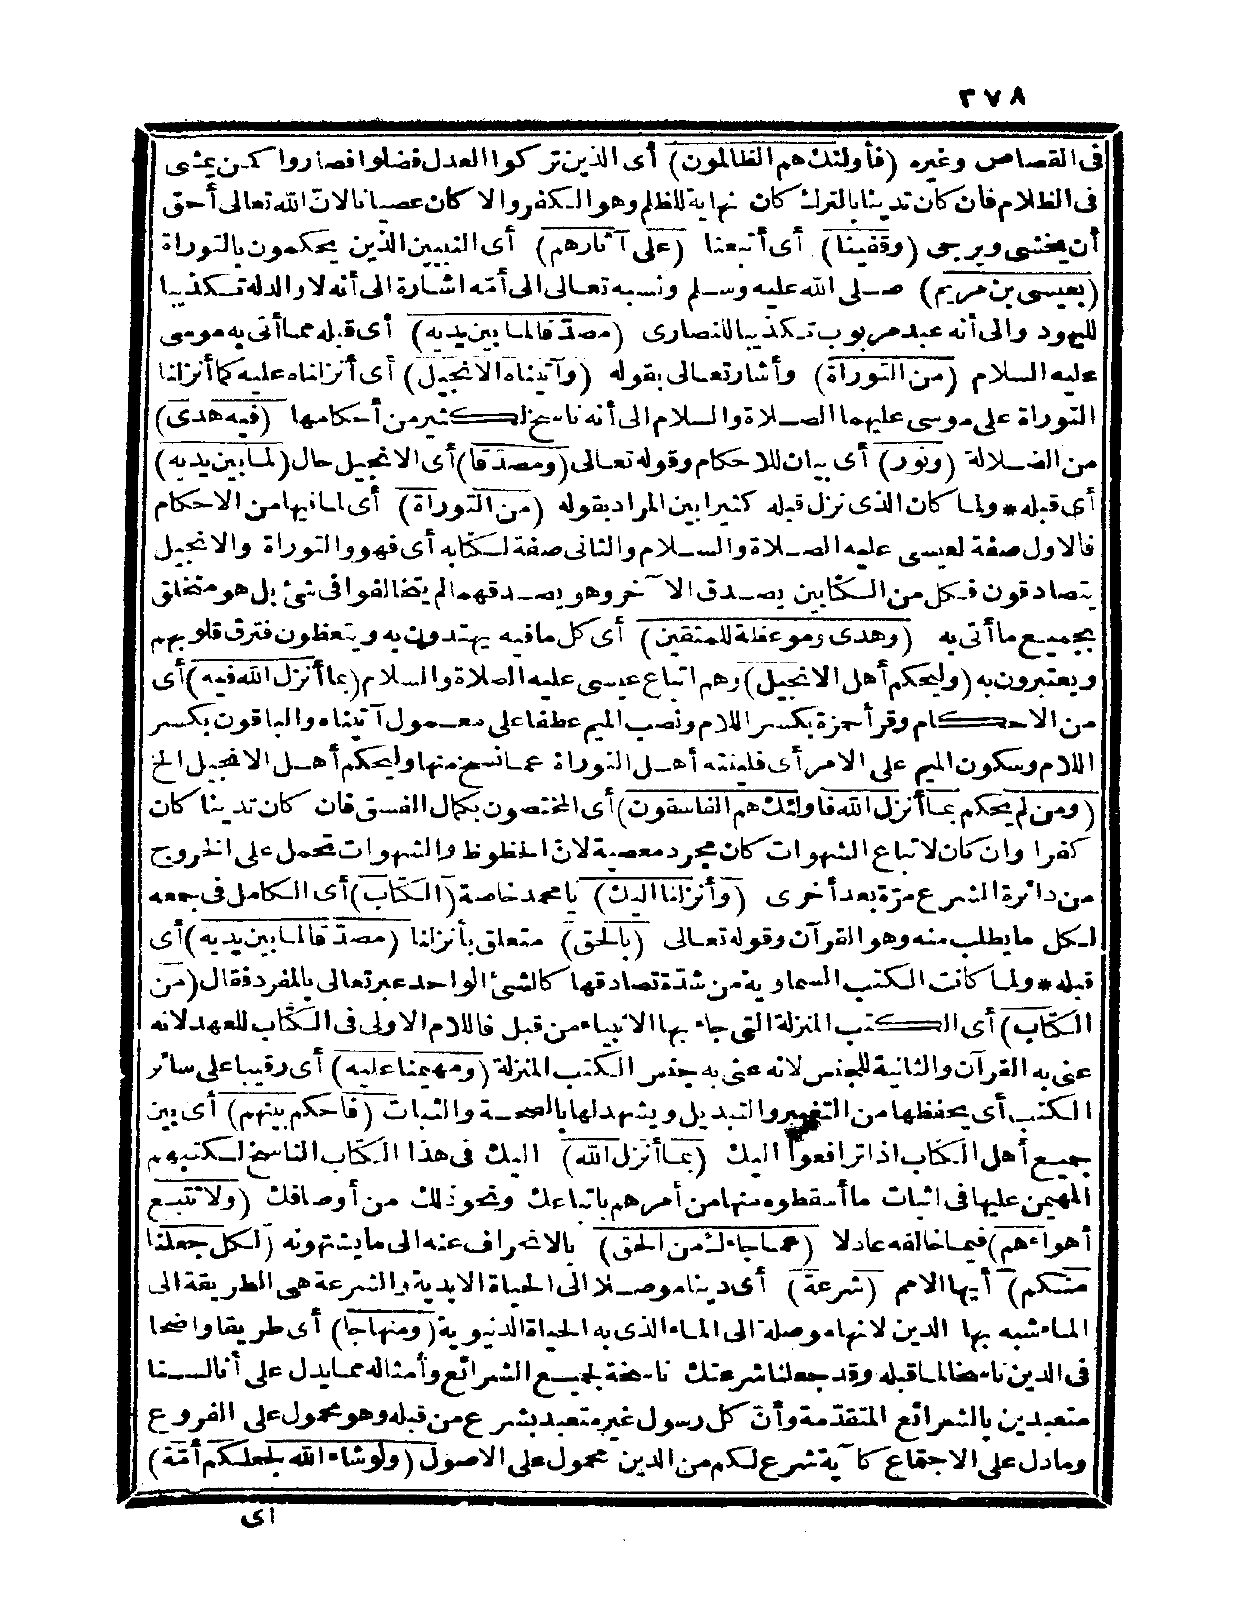 ٣٧٨
فى القصاص وغيره (فأولئك هم الظالمون) أى الذين تركوا العدل فضلوا فصاروا كمن يمشى
فى الظلام فان كان تدينا بالترك كان نهاية للظلم وهو الكفر والا كان عصيانا لانّ الله تعالى أحق
أن يخشى ويرجى (وقفينا) أى أتبعنا (على آثارهم) أى النبيين الذين يحكمون بالتوراة
(بعيسى بن مريم) صلى الله عليه وسلم ونسبه تعالى الى أمّه اشارة الى أنه لا والد له تكذيبا
لليهود والى أنه عبد مربوب تكذيبا للنصارى (مصدّقا لما بين يديه) أى قبله مما أتى به موسى
عليه السلام (من التوراة) وأشار تعالى بقوله (وآتيناه الانجيل) أى أنزلناه عليه كما أنزلنا
التوراة على موسى عليهما الصلاة والسلام الى أنه ناسخ لكثير من أحكامها (فيه هدى)
من الضلالة (ونور) أى بيان للاحكام وقوله تعالى (ومصدّقا) أى الانجيل حال (لما بين يديه)
أى قبله * ولما كان الذى نزل قبله كثيرا بين المراد بقوله (من التوراة) أى لما فيها من الاحكام
فالاول صفة لعيسى عليه الصلاة والسلام والثانى صفة لكتابه أى فهو والتوراة والانجيل
يتصادقون فكل من الكتابين يصدق الآخر وهو يصدقهما لم يتخالفوا فى شئ بل هو متخلق
بجميع ما أتى به (وهدى وموعظة للمتقين) أى كل ما فيه يهتدون به ويتعظون فترق قلوبهم
ويعتبرون به (وليحكم أهل الانجيل) وهم اتباع عيسى عليه الصلاة والسلام (بما أنزل الله فيه) أى
من الاحكام وقرأ حمزة بكسر اللام ونصب الميم عطفا على معمول آتيناه والباقون بكسر
اللام وسكون الميم على الامر أى فلينته أهل التوراة عما نسخ منها وليحكم أهل الانجيل الخ
(ومن لم يحكم بما أنزل الله فاولئك هم الفاسقون) أى المختصون بكمال الفسق فان كان تدينا كان
كفرا وان كان لاتباع الشهوات كان مجرد معصية لانّ الحظوظ والشهوات تحمل على الخروج
من دائرة الشرع مرّة بعد أخرى (وأنزلنا اليك) يا محمد خاصة (الكتاب) أى الكامل فى جمعه
لكل ما يطلب منه وهو القرآن وقوله تعالى (بالحق) متعلق بأنزلنا (مصدّقا لما بين يديه) أى
قبله * ولما كانت الكتب السماوية من شدّة تصادقها كالشئ الواحد عبر تعالى بالمفرد فقال (من
الكتاب) أى الكتب المنزلة التى جاء بها الانبياء من قبل فاللام الاولى فى الكتاب للعهد لانه
عنى به القرآن والثانية للجنس لانه عنى به جنس الكتب المنزلة (ومهيمنا عليه) أى رقيبا على سائر
الكتب أى يحفظها من التغيير والتبديل ويشهد لها بالصحة والثبات (فاحكم بينهم) أى بين
جميع أهل الكتاب اذا ترافعوا اليك (بما أنزل الله) اليك فى هذا الكتاب الناسخ لكتبهم
المهيمن عليها فى اثبات ما أسقطوه منها من أمرهم باتباعك ونحو ذلك من أوصافك (ولا تتبع
أهواءهم) فيما خالفه عادلا (عما جاءك من الحق) بالانحراف عنه الى ما يشتهونه (لكل جعلنا
منكم) أيها الامم (شرعة) أى دينا موصلا الى الحياة الابدية والشرعة هى الطريقة الى
الماء شبه بها الدين لانها موصلة الى الماء الذى به الحياة الدنيوية (ومنهاجا) أى طريقا واضحا
فى الدين ناسخا لما قبله وقد جعلنا شرعتك ناسخة لجميع الشرائع وأمثاله مما يدل على أنا لسنا
متعبدين بالشرائع المتقدمة وأنّ كل رسول غير متعبد بشرع من قبله وهو محمول على الفروع
وما دل على الاجتماع كآية شرع لكم من الدين محمول على الاصول (ولو شاء الله لجعلكم أمّة)
اى